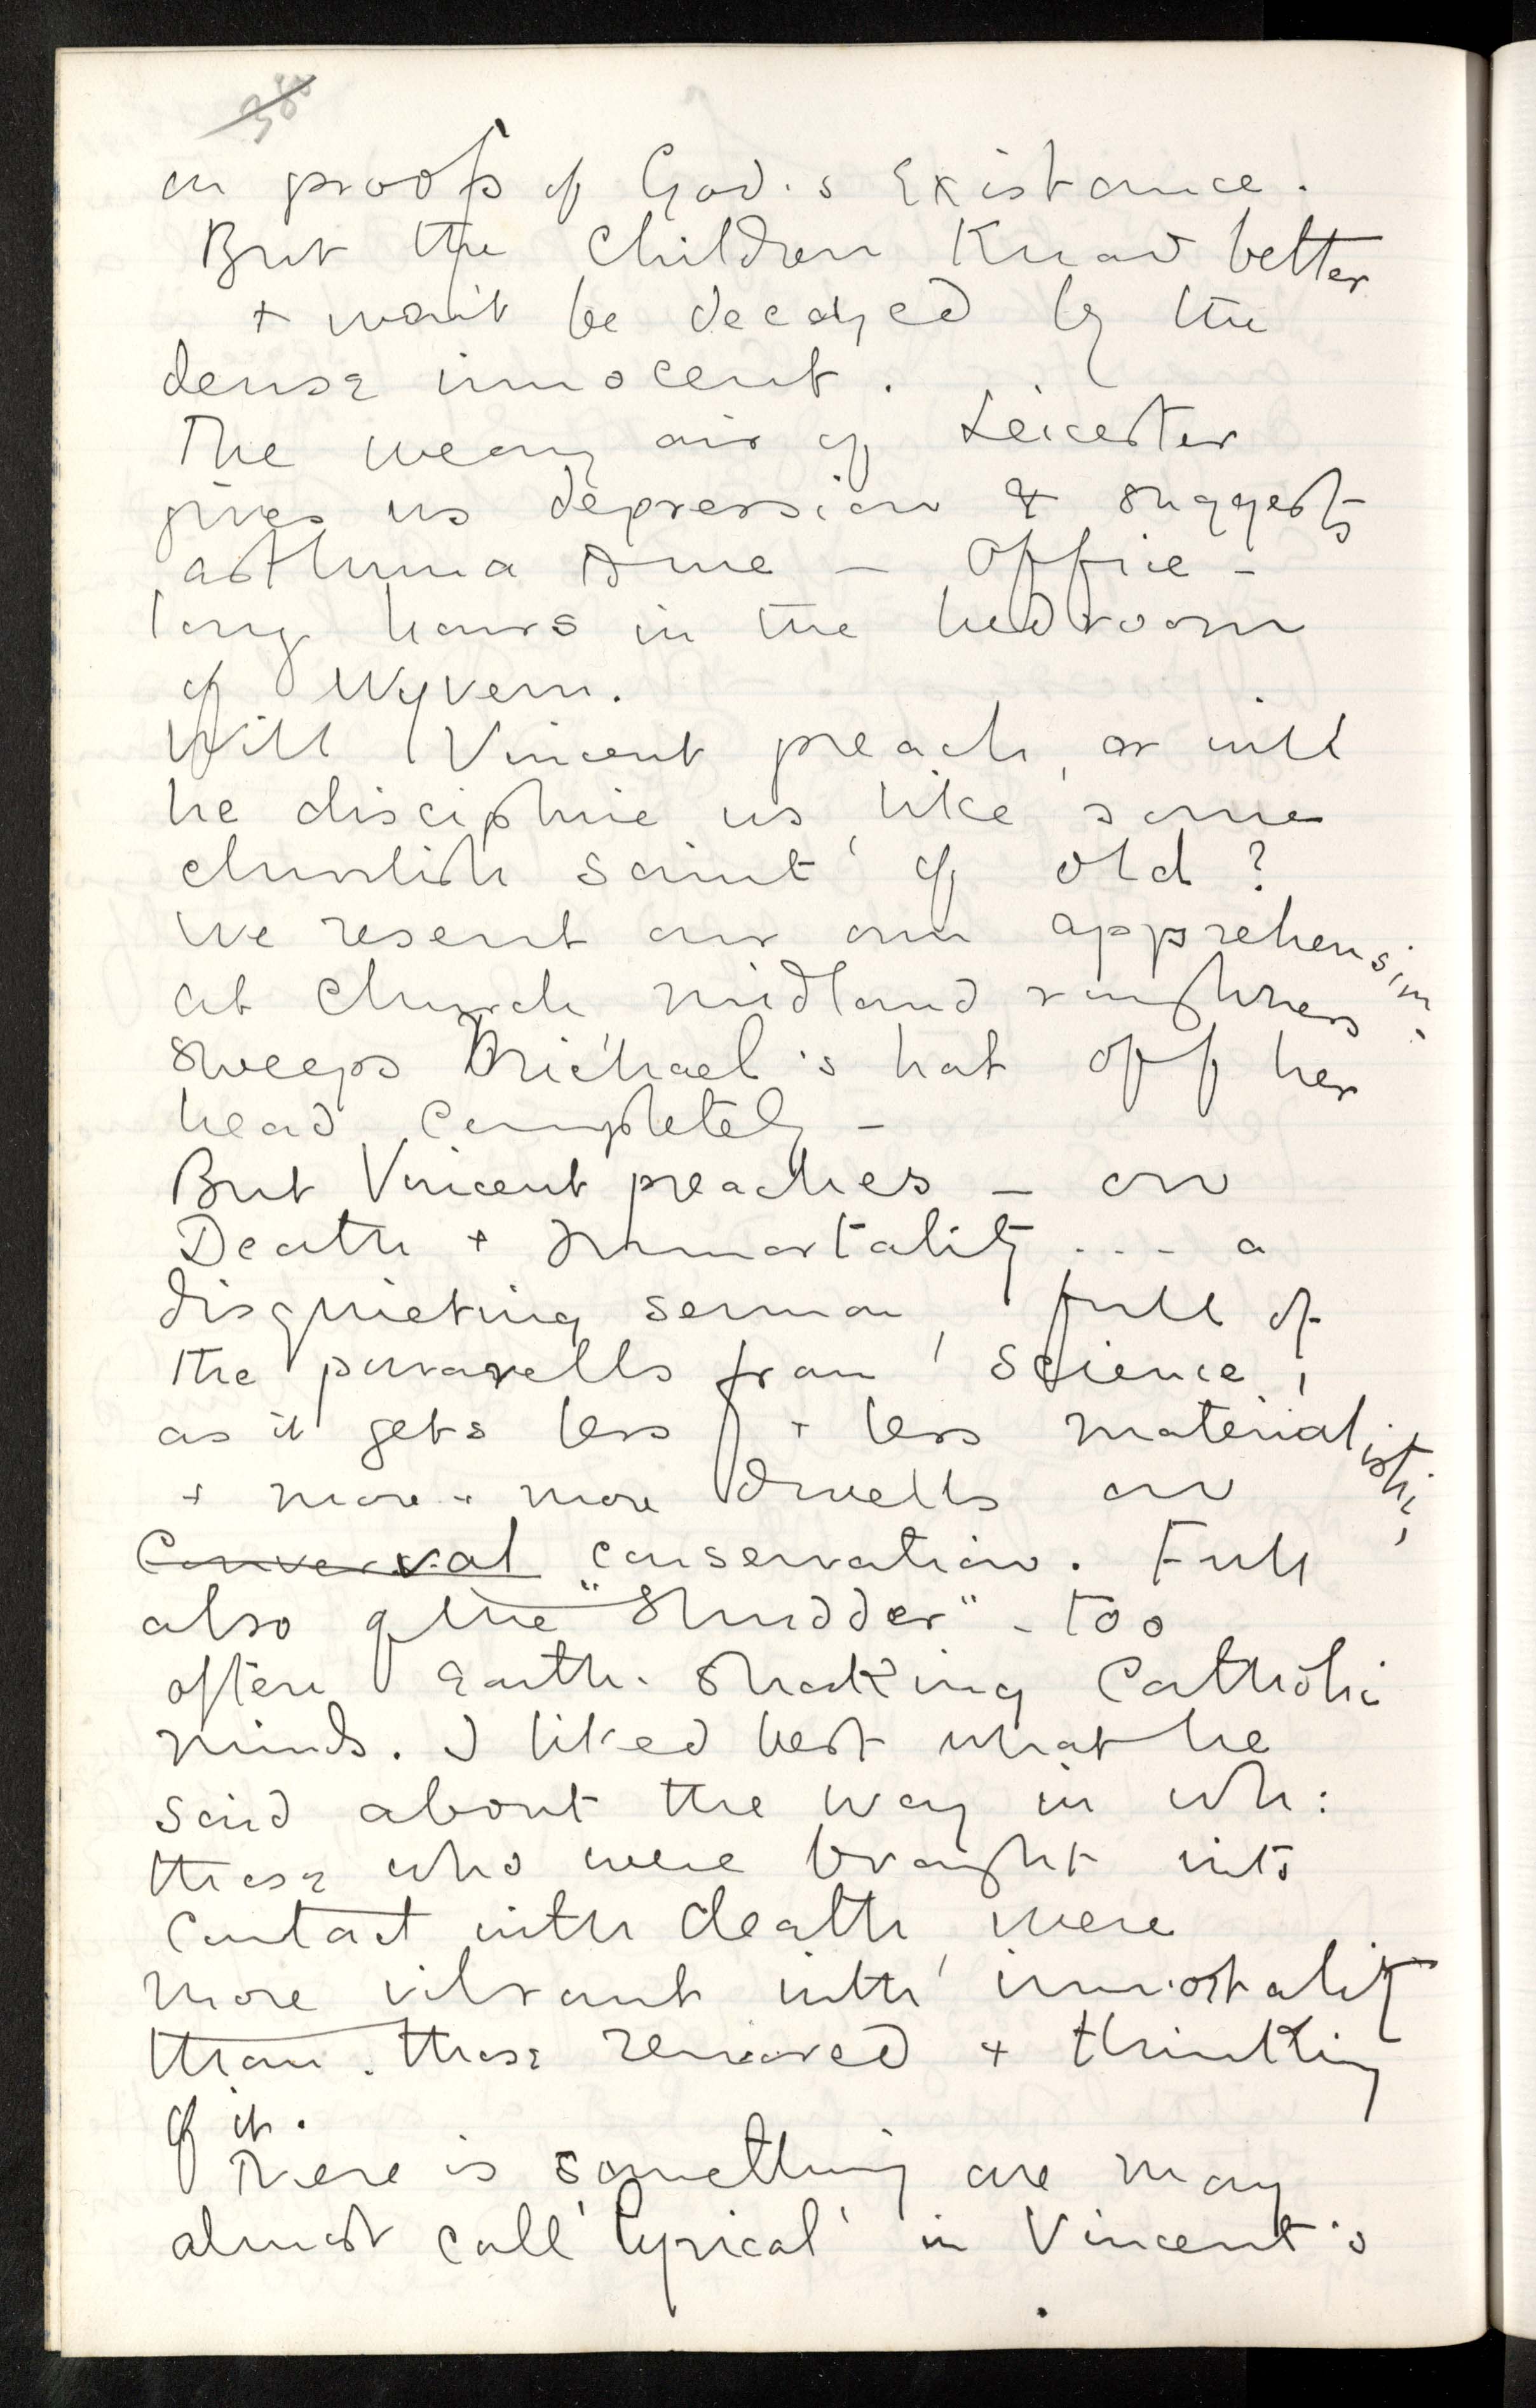 on proofs of God's Existance.
But the Children Know better
+ won't be decoyed by the
dense innocent.
The weary air of Leicester
gives us depression & suggests
asthma to me — Office —
long hours in the bedroom
of Wyvern.
Will Vincent preach, or will
he discipline us, like some
churlish saint of old?
We resent our own apprehension.
At Church midland roughness
sweeps Michael's hat off her
head completely —
But Vincent preaches — on
Death + Immortality ... a
disquieting sermon, full of
the pararells from Science,
as it gets less + less materialistic,
+ more + more dwells on
conservation. Full
also of the "Shudder" - too
often Earth-shaking Catholic
minds. I liked best what he
said about the way in wh:
those who were brought into
Contact with death, were
more vibrant with immortality
than those removed + thinking
of it.
There is something one may
almost call 'lyrical' in Vincent's